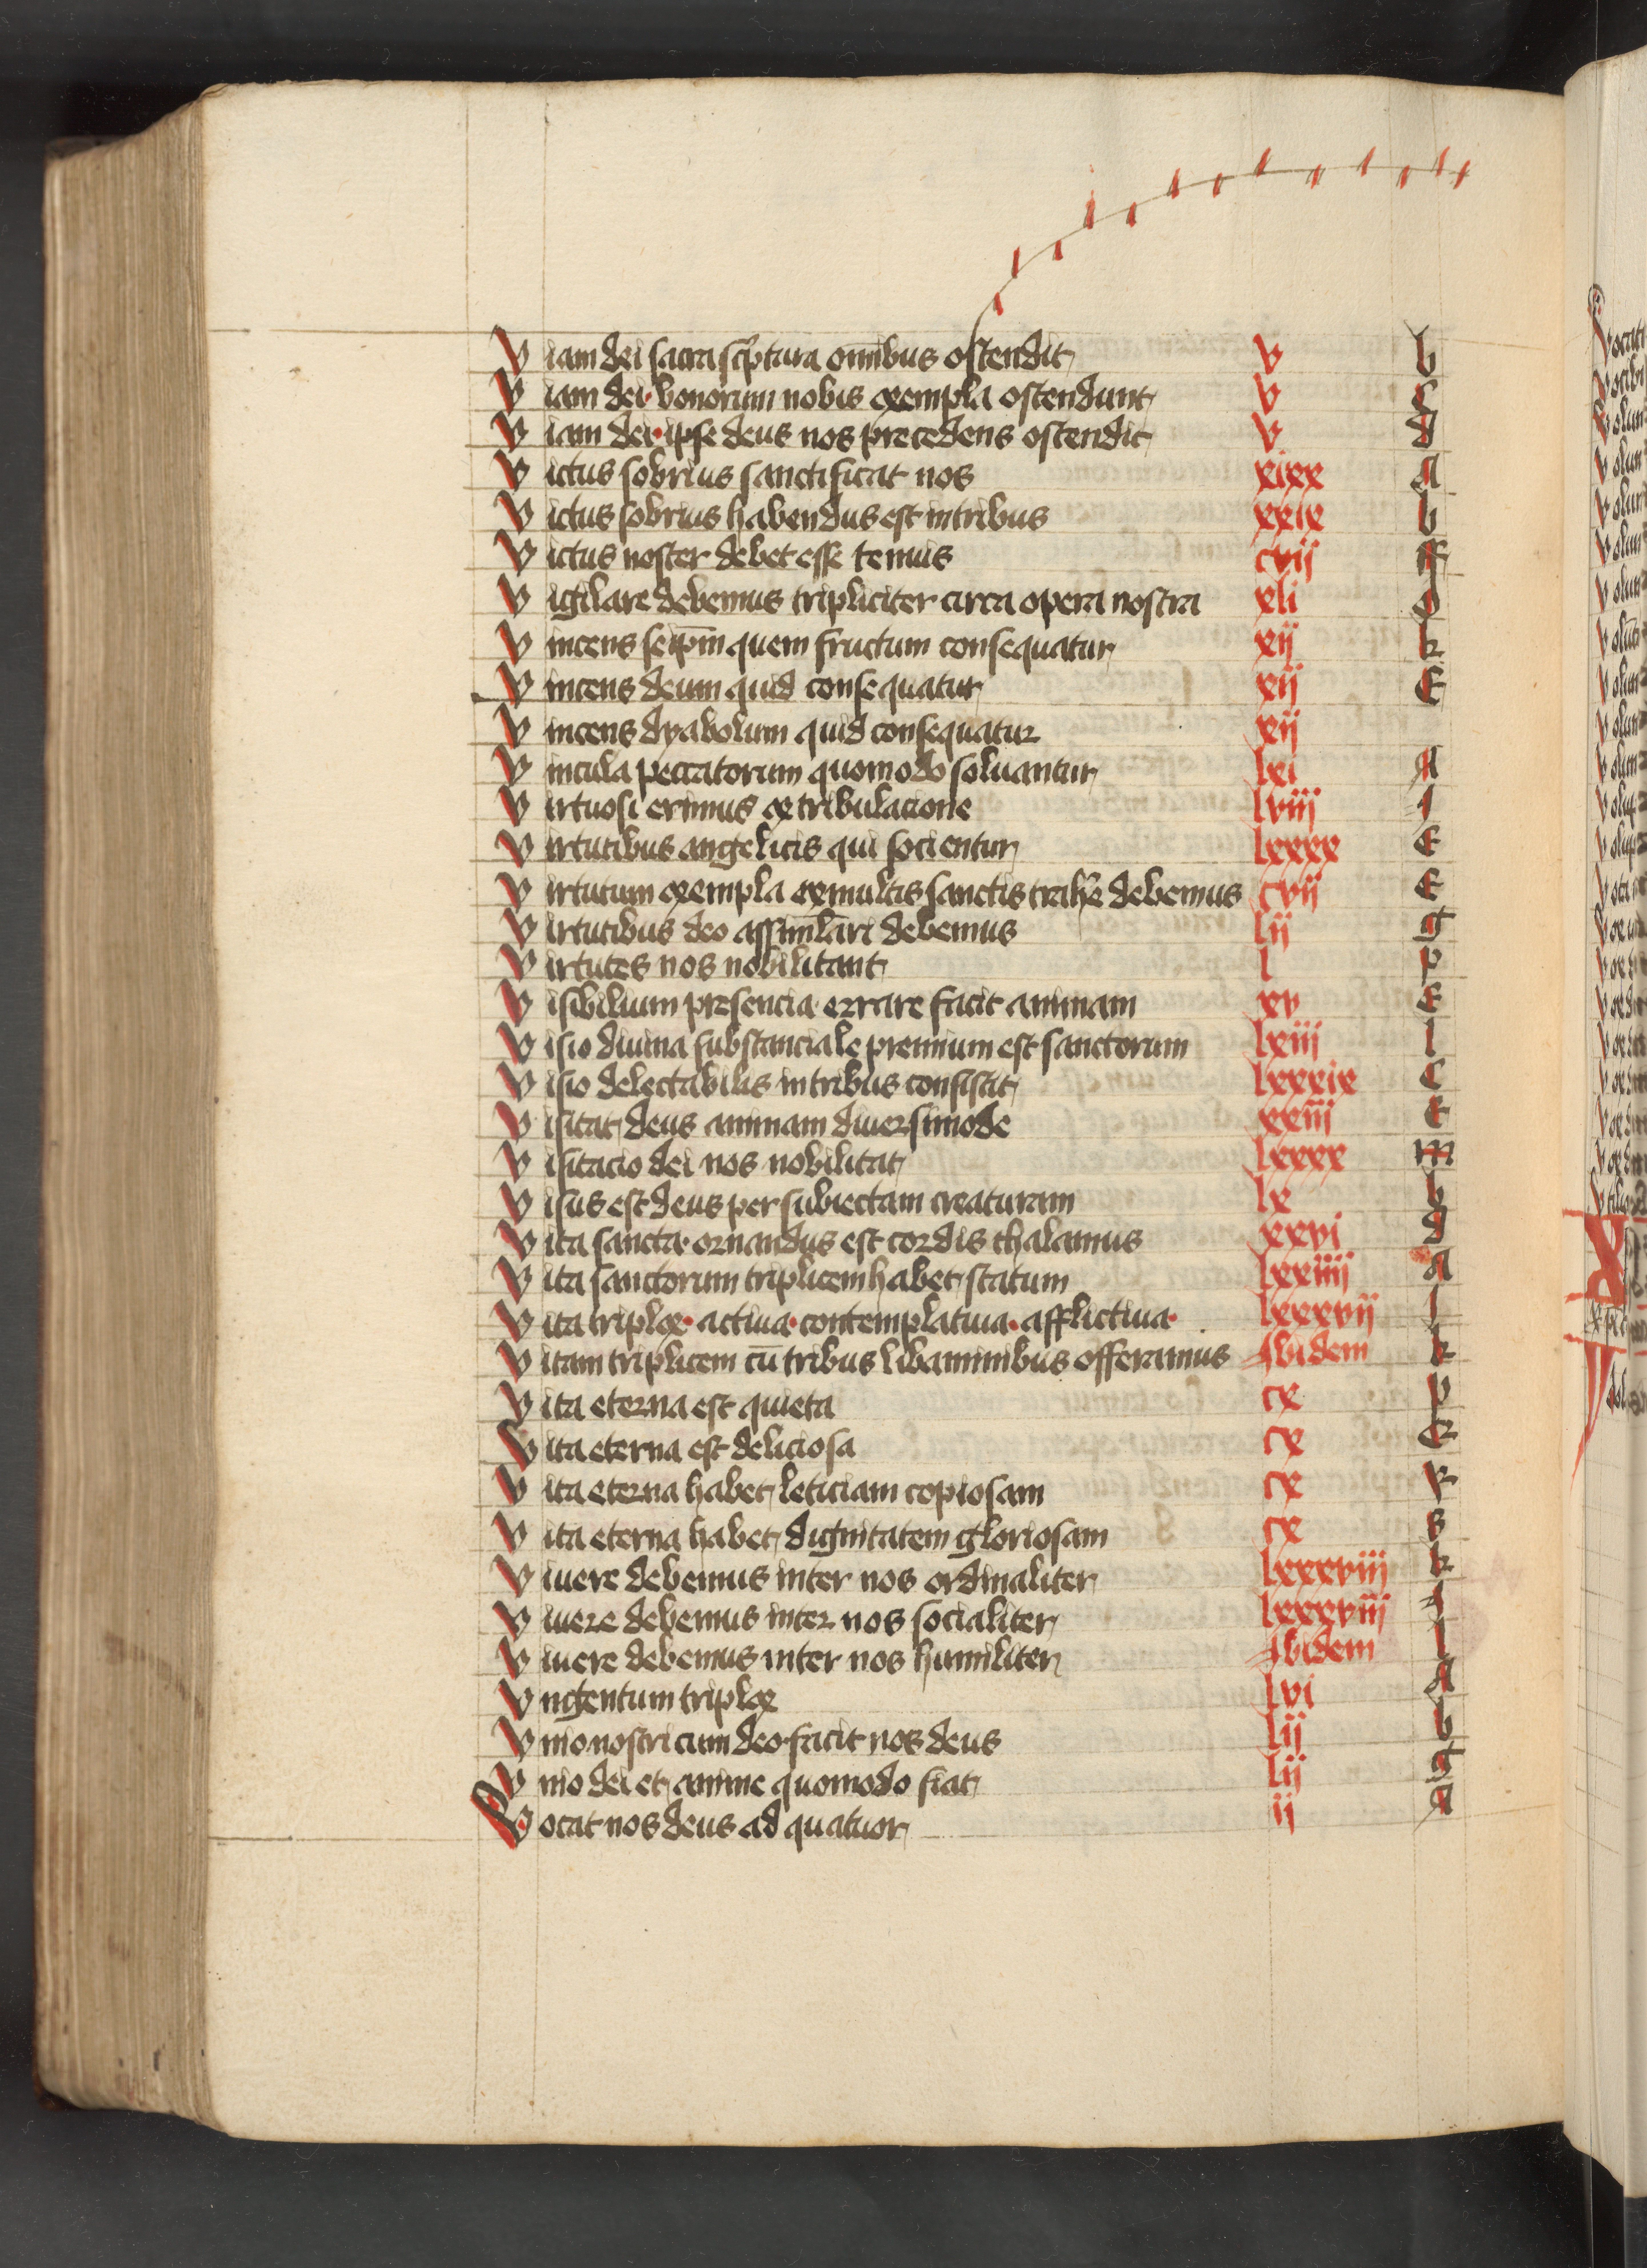 Viam dei sacra sc̅ptura om̅ibus ostendit v b
Viam dei bonorum nobis exempla ostendunt v c
Viam dei ipse deus nos precedens ostendit v d
Victus sobrius sanctificat nos xixx a
Victus sobrius habendus est in tribus xxix b
Victus noster debet esse tenuis cvij ff
Vigilare debemus tripliciter circa opera nostra xli d
Vincens seip̅m quem fructum consequatur xij k
Vincens deum quid consequatur xij E
Vincens dyabolum quid consequatur xij
Vincula peccatorum quomodo soluantur lxi a
Virtuosi erimus ex tribulacione lviij i
Virtutibus angelicis qui socientur lxxxx E
Virtutum exempla ex multis sanctis trah̅e debemus cvij E
Virtutibus deo assimilari debemus lij g
Virtutes nos nobilitant l p
Visibilium presencia errare facit animam xv E
Visio diuina substanciale premium est sanctorum lxiij l
Visio delectabilis in tribus consistit lxxxix C
Visitat deus animam diuersimode xxiij E
Visitacio dei nos nobilitat lxxxx m
Visus est deus per subiectam creaturam lx b
Vita sancta ornandus est cordis thalamus xxvi d
Vita sanctorum triplicem habet statum lxxiiij a
Vita triplex actiua contemplatiua afflictiua lxxxvij l
Vitam triplicem cu̅ tribus libaminibus offeramus Ibidem k
Vita eterna est quieta cx p
Vita eterna est deliciosa cx q
Vita eterna habet leticiam copiosam cx R
Vita eterna habet dignitatem gloriosam cx s
Viuere debemus inter nos ordinaliter lxxxviij k
Viuere debemus inter nos socialiter lxxxviij i
Viuere debemus inter nos humiliter Ibidem l
Vngentum triplex lvi a
Vnio nostri cum deo facit nos deus lij b
Vnio dei et anime quomodo fiat lij g
Vocat nos deus ad quatuor ij a